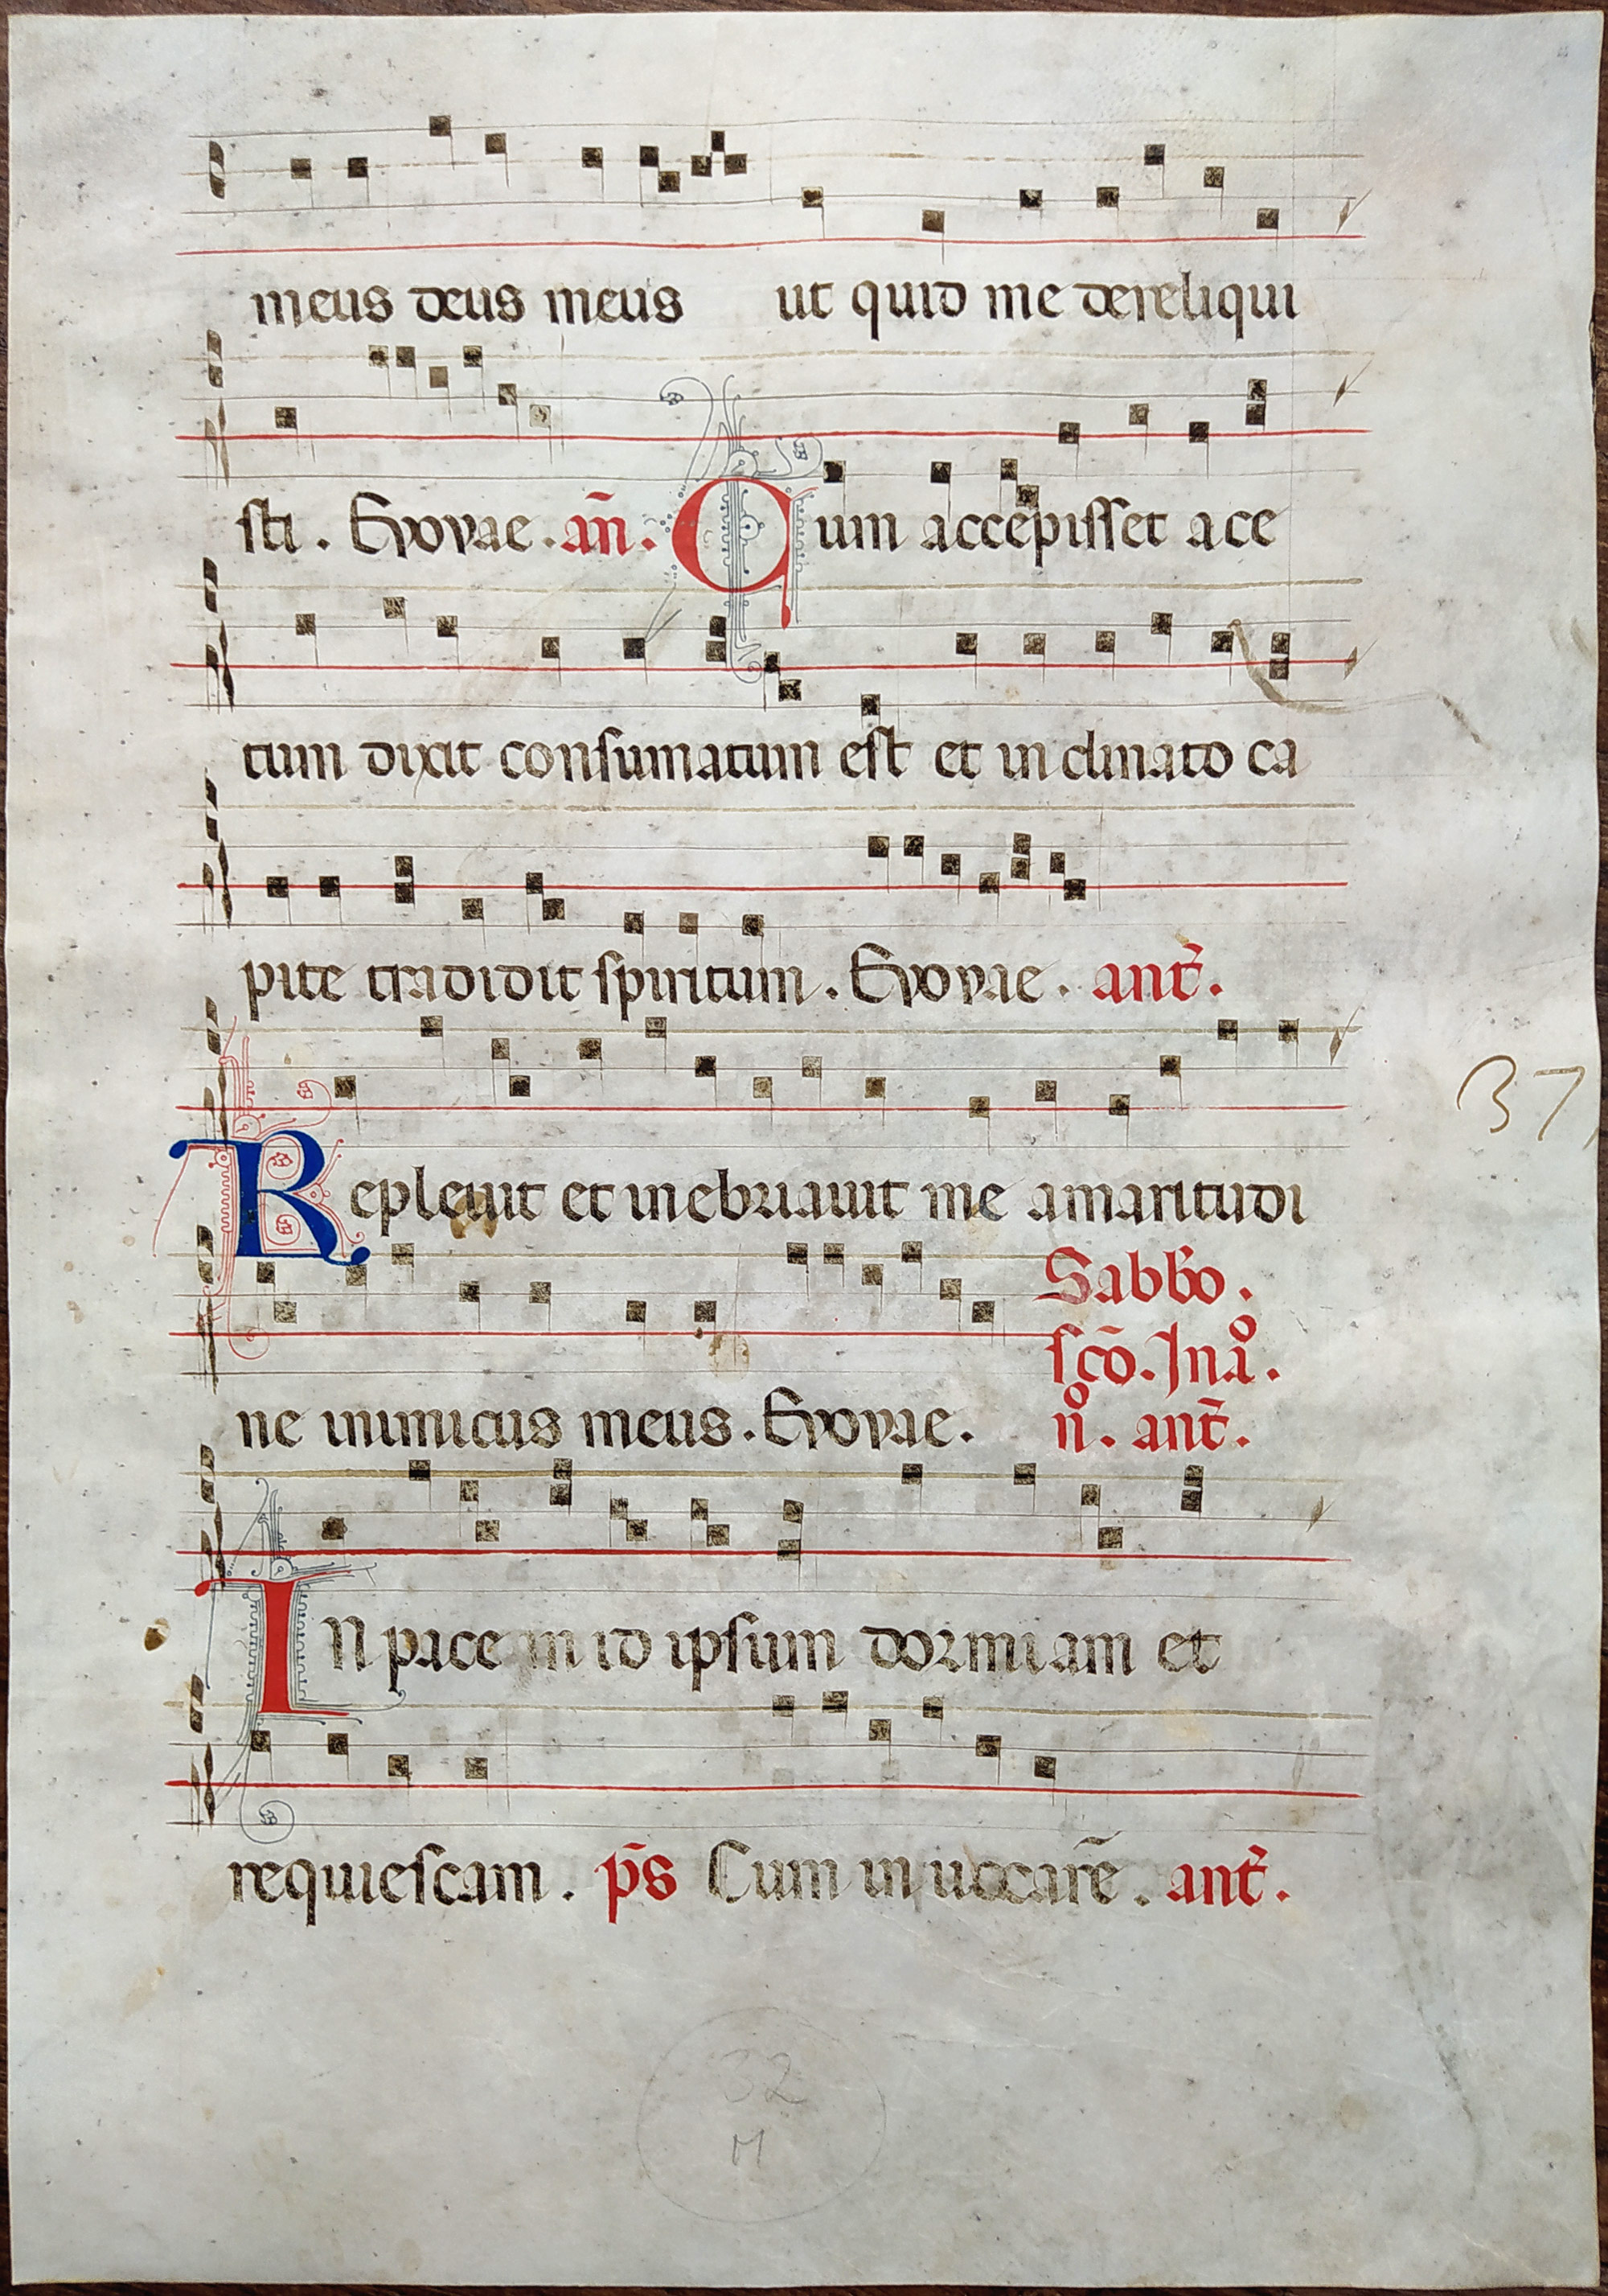 meus deus meus ut quid me dereliqui
sti . Evovae . an̄ . Cum accepisset ace
tum dixit consumatum est et in clinato ca
pite tradidit spiritum . Evovae . ant̄ .
Repleuit et inebriauit me amaritudi
Sabbo .
sc̄o . In .i.º
ne inimicus meus . Evovae . nº . ant̄ .
In pace in id ipsum dormiam et
requiescam . p̄s Cum inuocarē . ant̄ .
37
32
M